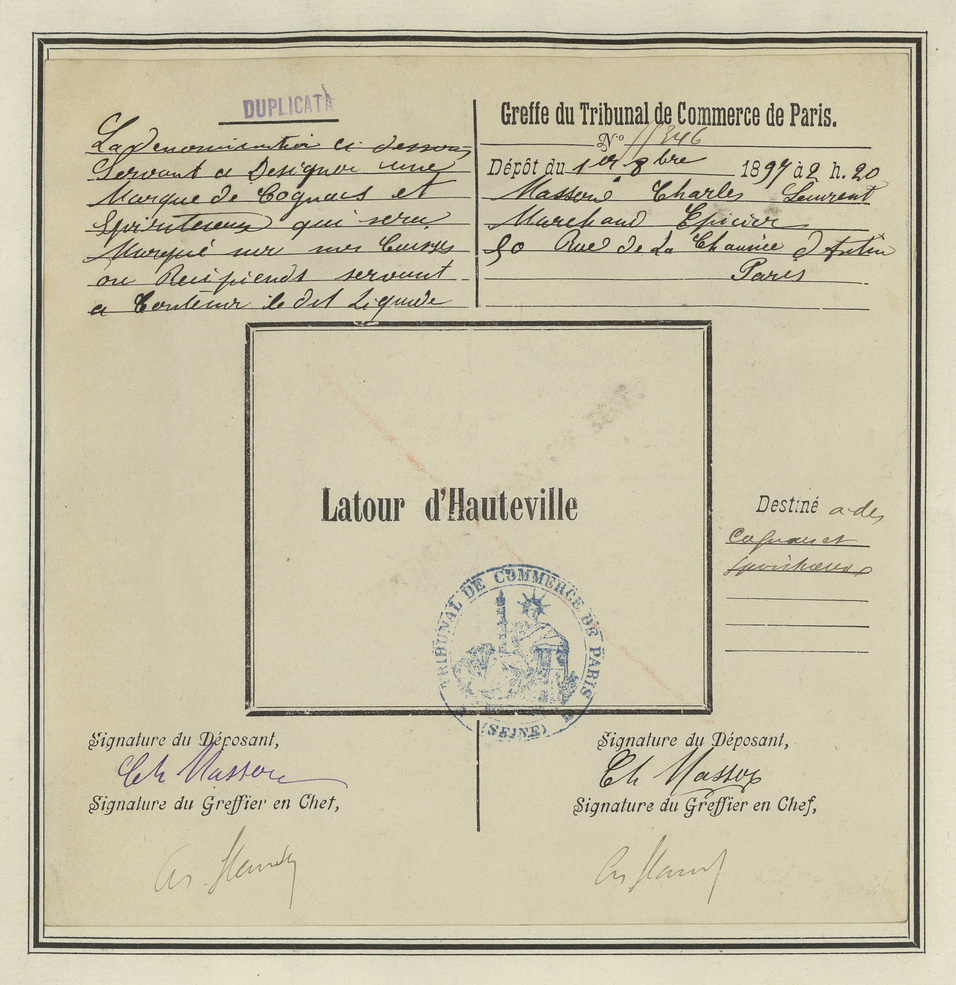 DUPLICATA
La Denomination ci dessous
Servant a Designer une
Marque de Cognacs et
Spiritueux qui sera
Marqué sur mes Caisses
ou Recipients servant
a Contenir le dit Liquide
Greffe du Tribunal de Commerce de Paris.
N°
Dépôt du 1er 8bre 1897 à 2 h. 20
Charles Laurent
Marchand Epicier
Rue de La Chaussée d'Antin
Paris
Latour d'Hauteville
Destiné a des
Cognacs et
Spiritueux
TRIBUNAL DE COMMERCE DE PARIS
(SEINE)
Signature du Déposant,
Signature du Déposant,
Ch
Ch
Signature du Greffier en Chef,
Signature du Greffier en Chef,